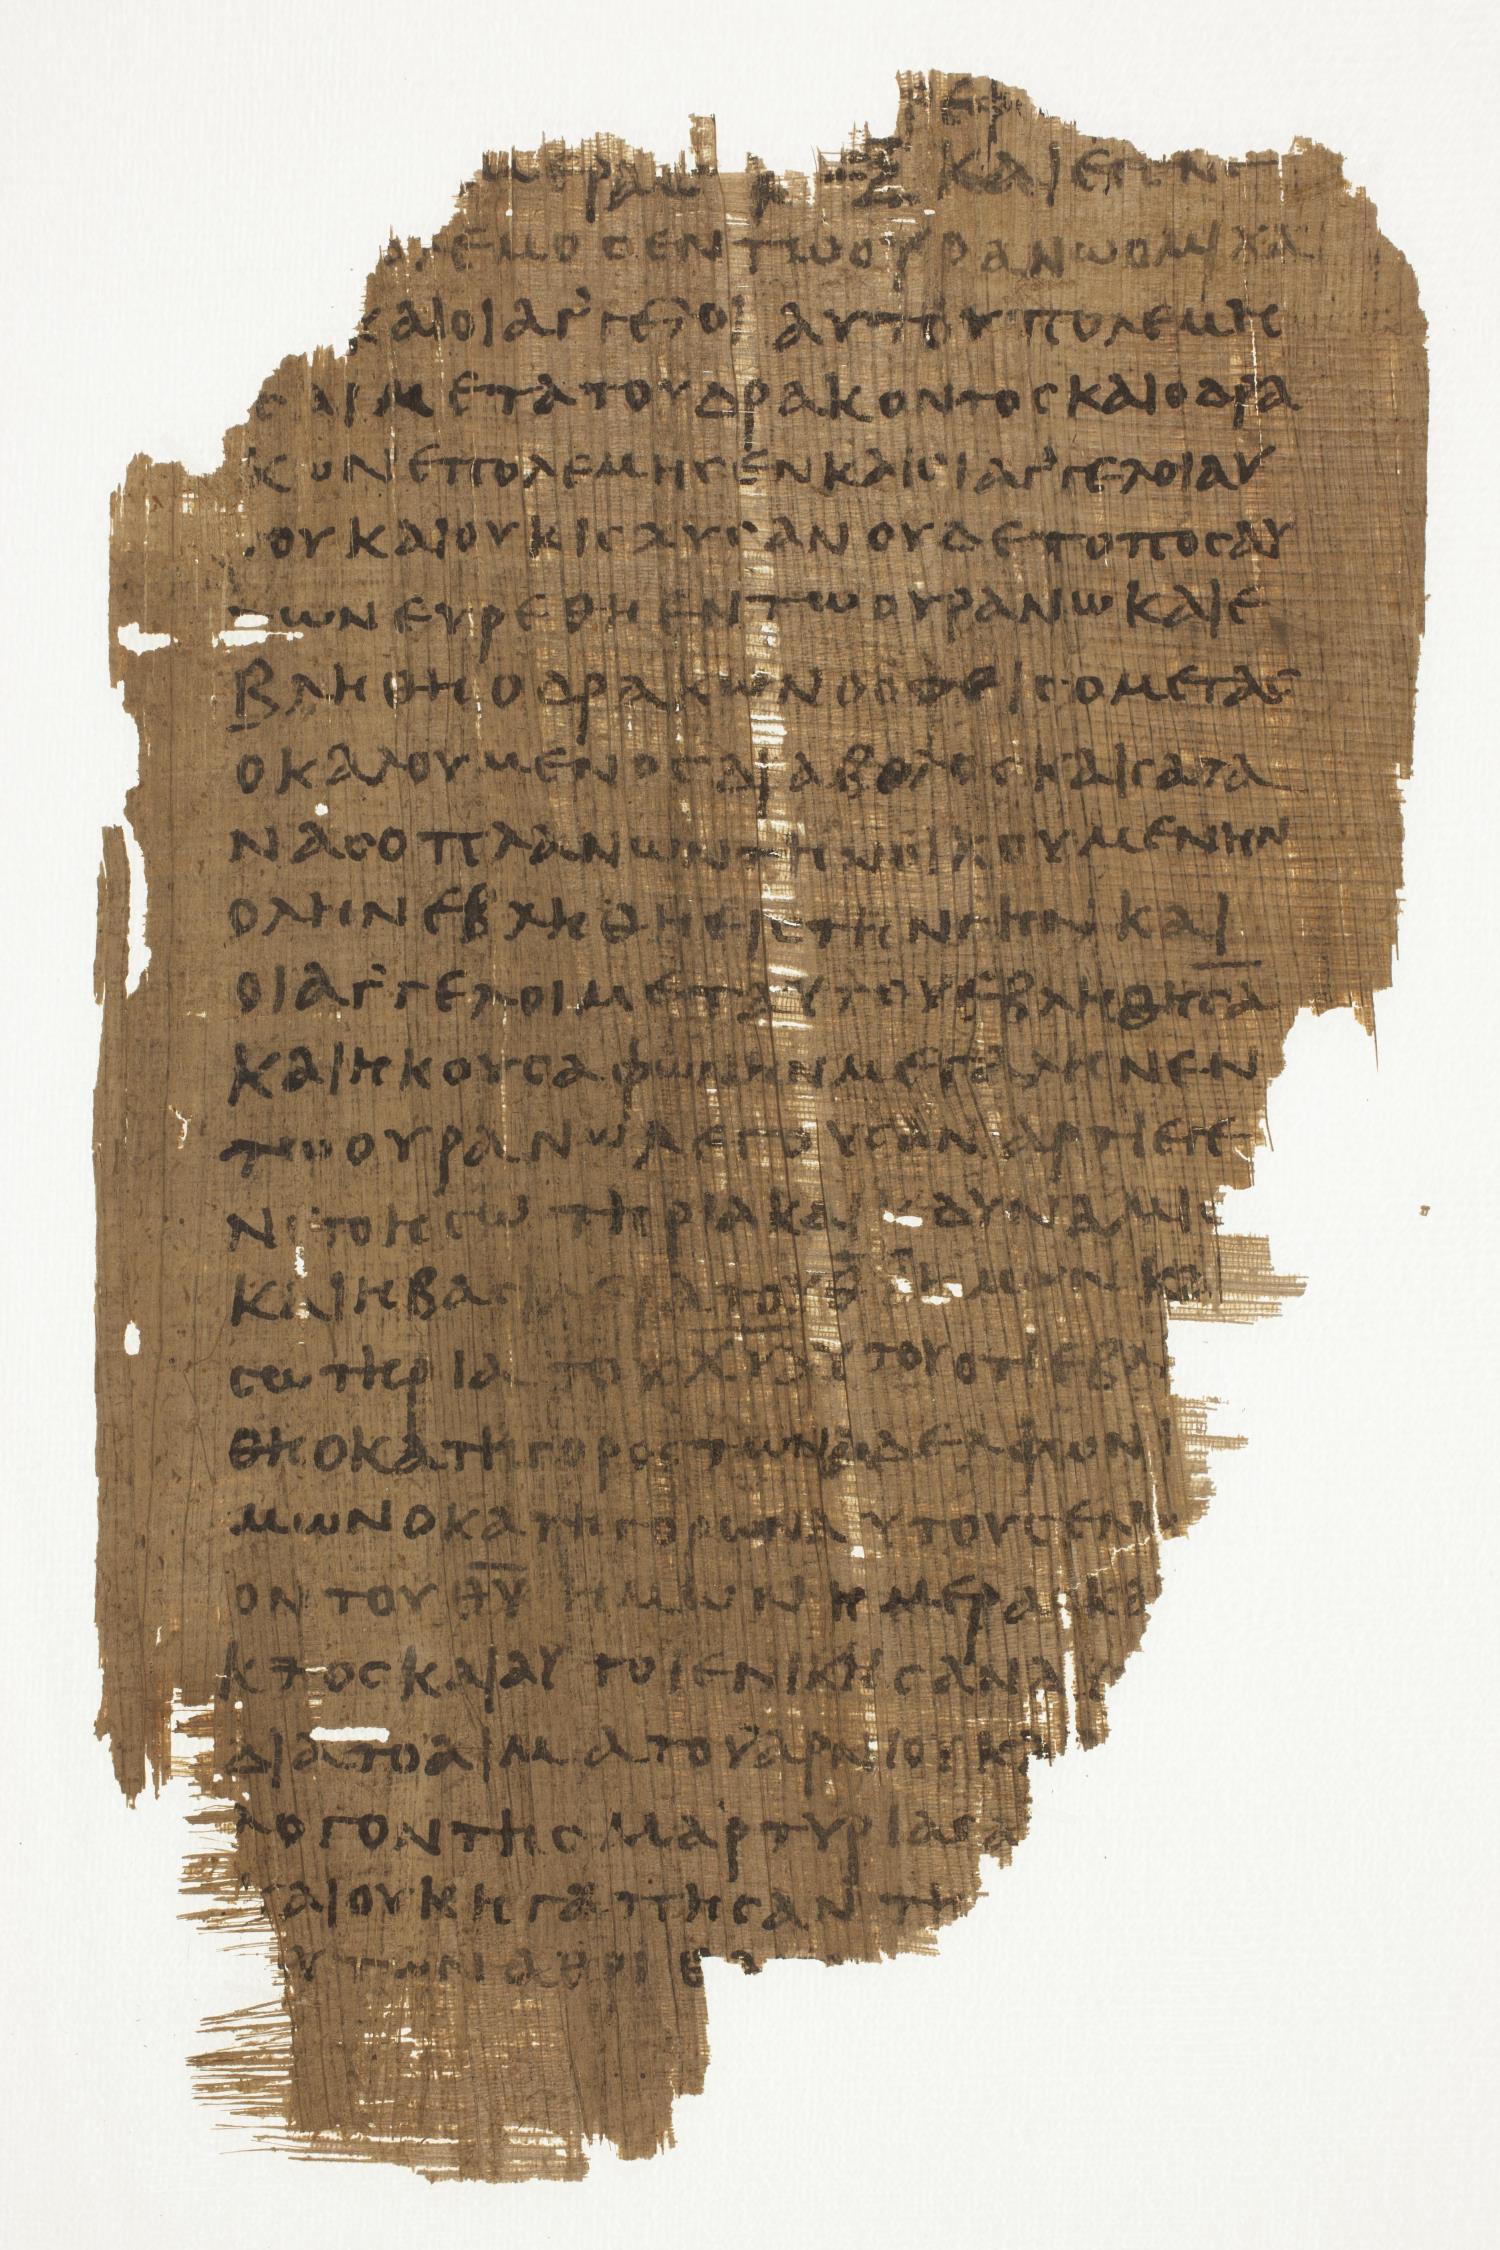 ρεφ
μερας ͵α̅σ̅ξ̅ και εγενετ
ολεμος εν τω ουρανω ο μιχα
και οι αγ᾽γελοι αυτου πολεμη
σαι μετα του δρακοντος και ο δρα
κων επολεμησεν και οι αγ᾽γελοι αυ
του και ουκ ισχυσαν ουδε τοπος αυ
των ευρεθη εν τω ουρανω και ε
βληθη ο δρακων ο οφις ο μεγας
ο καλουμενος διαβολος και σατα
νας ο πλανων την οικουμενην
ολην εβληθη εις την γην και
οι αγ᾽γελοι μετ αυτου εβληθησα̅
και ηκουσα φωνην μεγαλην εν
τω ουρανω λεγουσαν αρτι εγε
νετο η σωτηρια και η δυναμις
και η βασιλεια του θ̅υ̅ ημων και
σωτηρια του χ̅υ̅ αυτου οτι εβλ
θη ο κατηγορος των αδελφων η
μων ο κατηγορων αυτους ενωπ
ον του θ̅υ̅ ημων ημερας κα
κτος και αυτοι ενικησαν αυ
δια το αιμα του αρνιου κα
λογον της μαρτυριας α
και ουκ ηγαπησαν τη
υτων αχρι θ